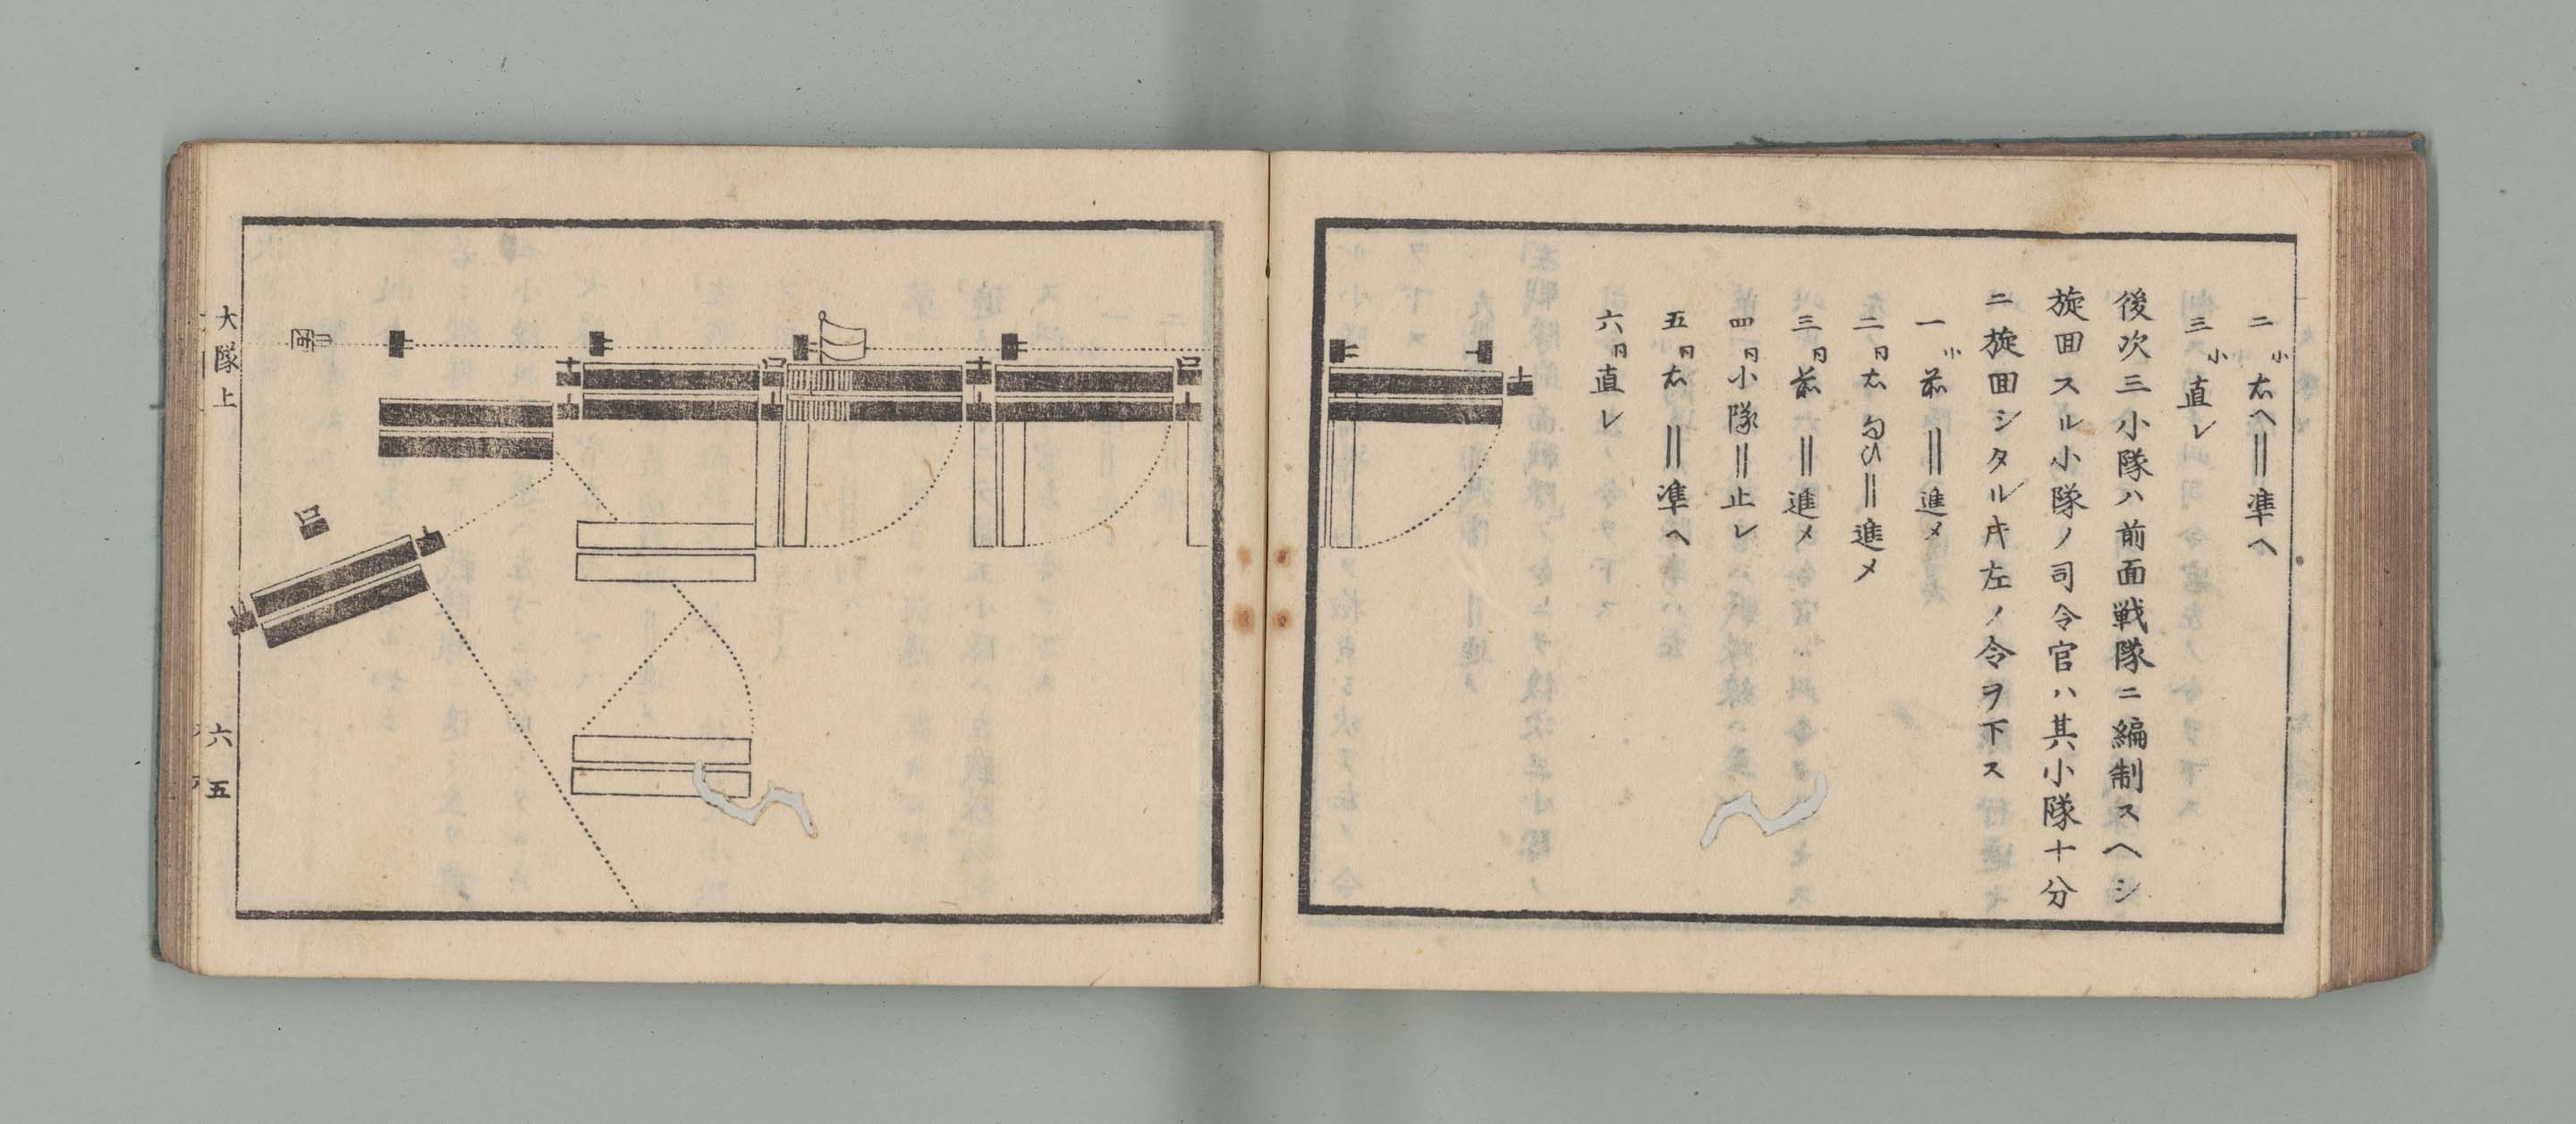 二 小 右ヘ‖準ヘ
三 小 直レ
後次三小隊ハ前面戦隊ニ編制スヘシ
旋回スル小隊ノ司令官ハ其小隊十分
ニ旋回シタル𪜈左ノ令ヲ下ス
一 小 前‖進メ
二 同 右匂ひ‖進メ
三 同 前‖進メ
四 同 小隊‖止レ
五 同 右‖準ヘ
六 同 直レ
大隊上
六五